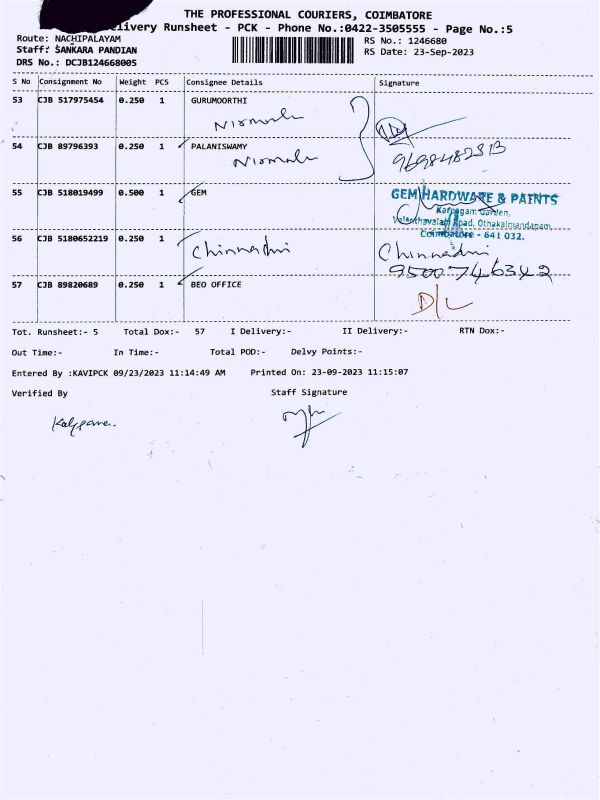 THE PROFESSIONAL COURIERS, COIMBATORE
Delivery Runsheet - PCK - Phone No.:0422-3505555 - Page No.:5
Route: NACHIPALAYAM RS No.: 1246680
Staff: SANKARA PANDIAN RS Date: 23-Sep-2023
DRS No.: DCJB124668005
S No Consignment No Weight PCS Consignee Details Signature
53 CJB 517975454 0.250 1 GURUMOORTHI
Nirmala
54 CJB 89796393 0.250 1 PALANISWAMY
Nirmala
55 CJB 518019499 0.500 1 GEM
GEM HARDWARE & PAINTS
Karpagam Garden,
Velanthavalam Road, Othakalmandapam,
Coimbatore - 641 032.
56 CJB 5180652219 0.250 1 Chinnadhri Chinnadhri
9500746342
57 CJB 89820689 0.250 1 BEO OFFICE
D/L
Tot. Runsheet:- 5 Total Dox:- 57 I Delivery:- II Delivery:- RTN Dox:-
Out Time:- In Time:- Total POD:- Delvy Points:-
Entered By :KAVIPCK 09/23/2023 11:14:49 AM Printed On: 23-09-2023 11:15:07
Verified By Staff Signature